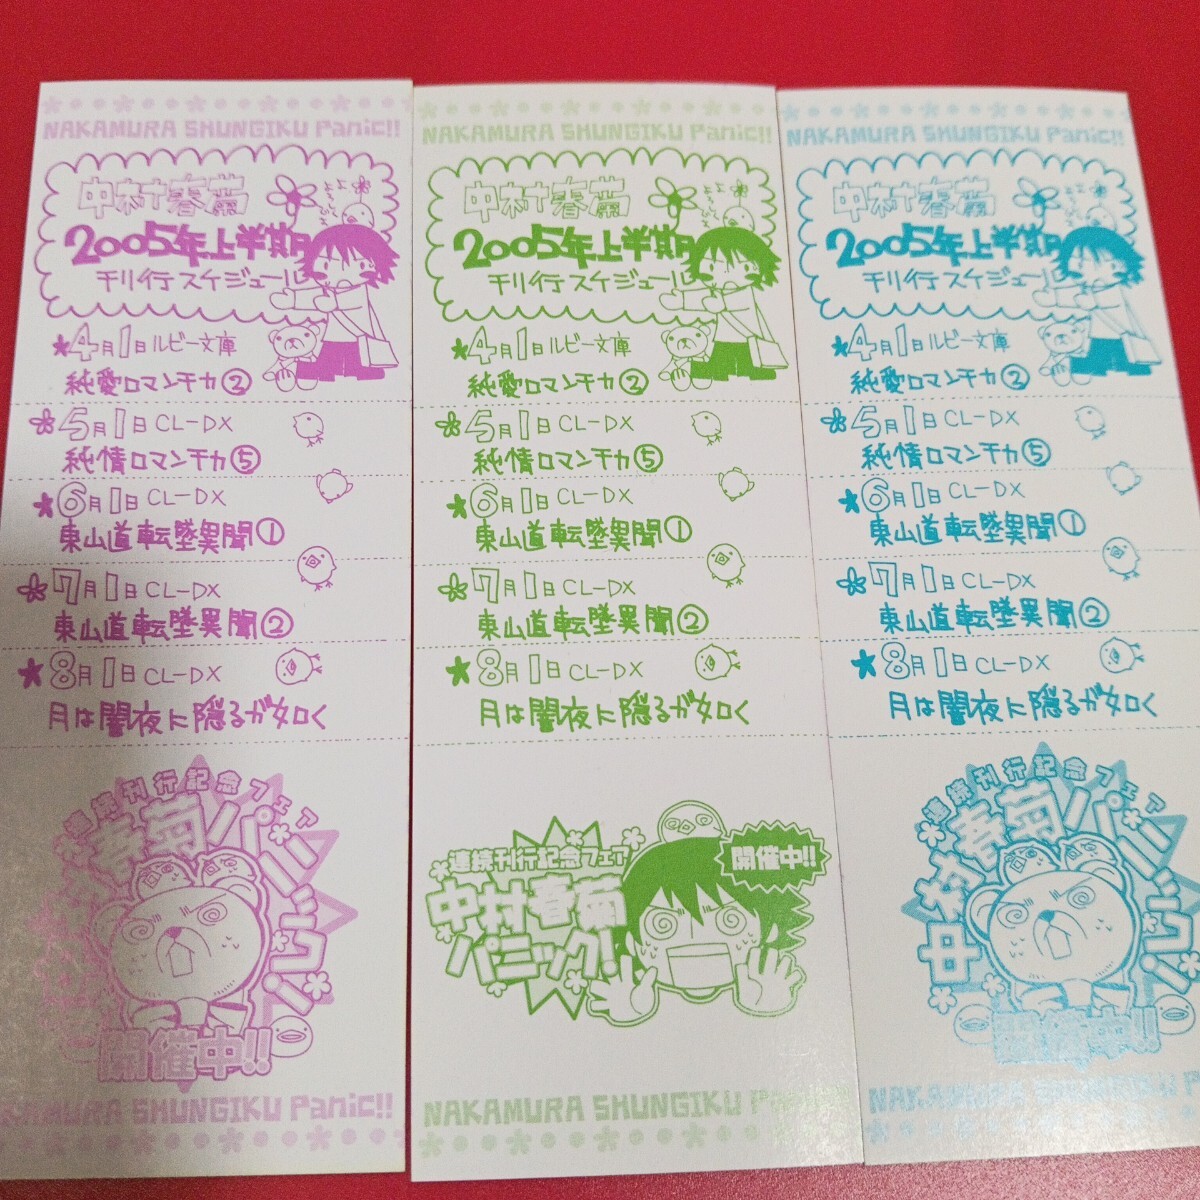 NAKAMURA SHUNGIKU Panic!!
中村春菊
よろぴく
2005年上半期
刊行スケジュール
4月1日ルビー文庫
純愛ロマンチカ②
5月1日CL-DX
純情ロマンチカ⑤
6月1日CL-DX
東山道転墜異聞①
7月1日CL-DX
東山道転墜異聞②
8月1日CL-DX
月は闇夜に隠るが如く
連続刊行記念フェア
中村春菊パニック!
開催中!!
NAKAMURA SHUNGIKU Panic!!
NAKAMURA SHUNGIKU Panic!!
中村春菊
よろぴく
2005年上半期
刊行スケジュール
4月1日ルビー文庫
純愛ロマンチカ②
5月1日CL-DX
純情ロマンチカ⑤
6月1日CL-DX
東山道転墜異聞①
7月1日CL-DX
東山道転墜異聞②
8月1日CL-DX
月は闇夜に隠るが如く
連続刊行記念フェア
中村春菊
パニック!
開催中!!
NAKAMURA SHUNGIKU Panic!!
NAKAMURA SHUNGIKU Panic!!
中村春菊
よろぴく
2005年上半期
刊行スケジュール
4月1日ルビー文庫
純愛ロマンチカ②
5月1日CL-DX
純情ロマンチカ⑤
6月1日CL-DX
東山道転墜異聞①
7月1日CL-DX
東山道転墜異聞②
8月1日CL-DX
月は闇夜に隠るが如く
連続刊行記念フェア
中村春菊パニック!
開催中!!
NAKAMURA SHUNGIKU Panic!!